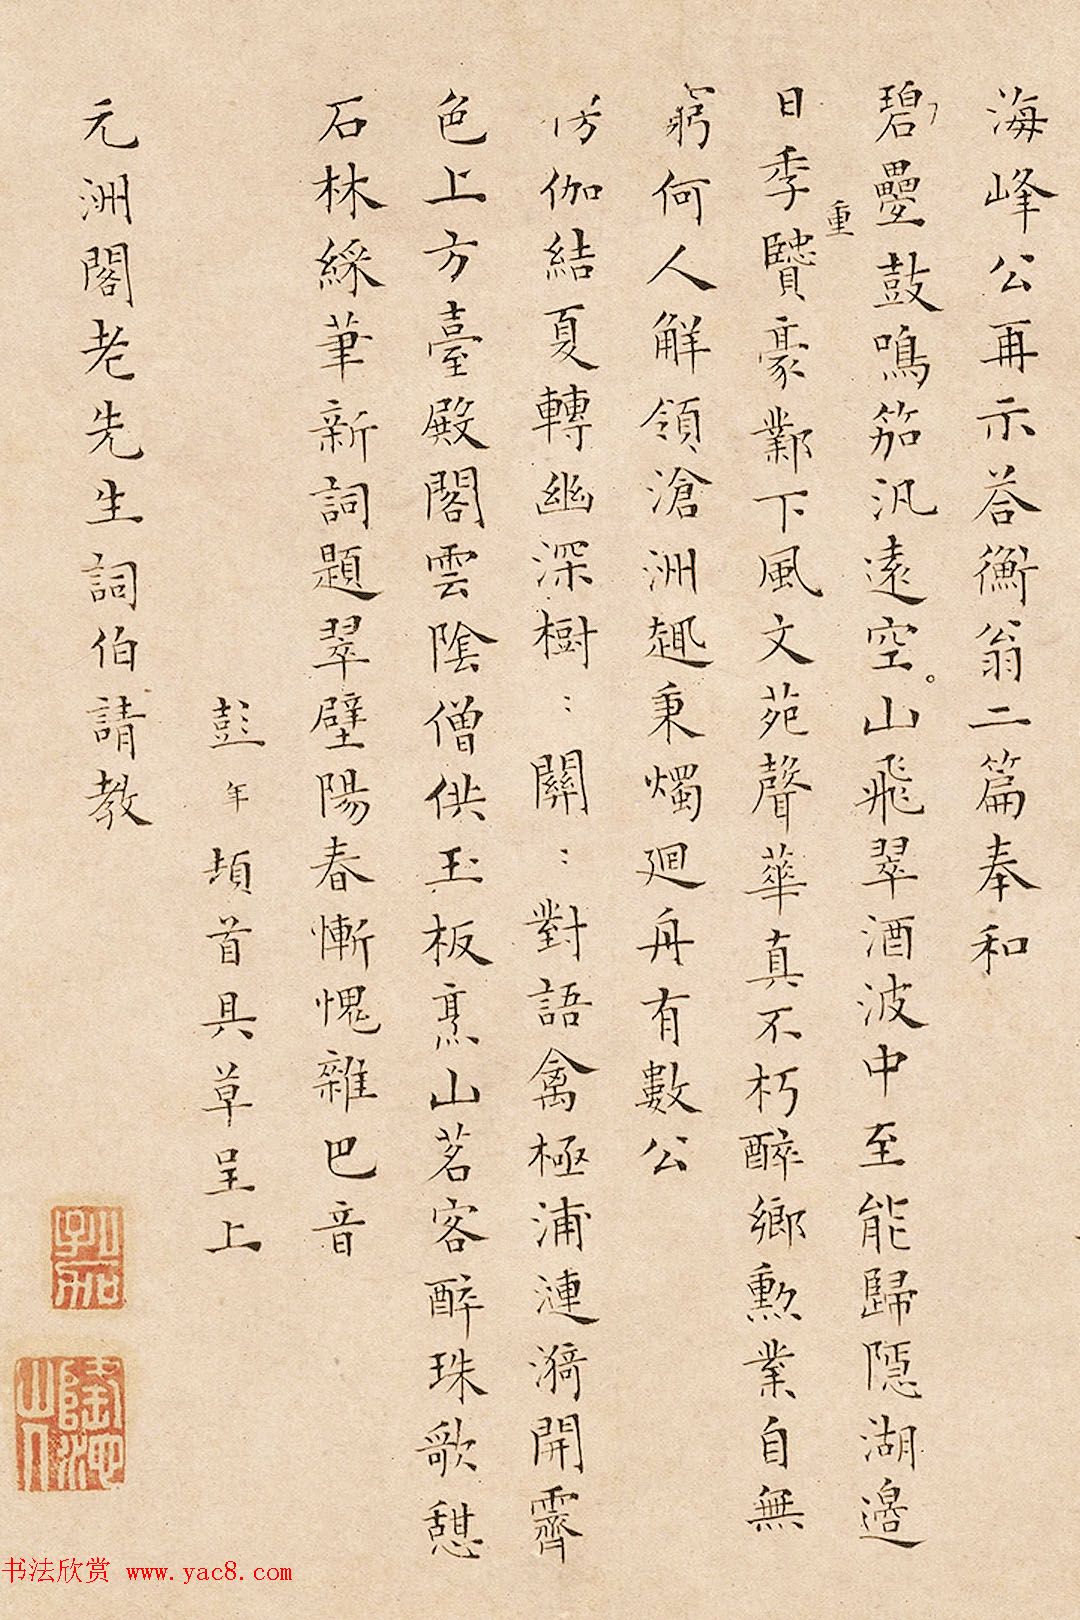 海峰公再示荅衡翁二篇奉和
碧疊鼓鳴笳汎遠空。山飛翠洒波中至能歸隱湖邉
重
日季贒豪鄴下風文苑聲華真不朽醉鄉勲業自無
窮何人觧領滄洲趣秉燭廻舟有數公
仿伽結夏轉幽深樹〻關〻對語禽極浦漣漪開霽
色上方臺殿閣雲陰僧供玉板烹山茗客醉珠歌憩
石林綵筆新詞題翠壁陽春慚愧雜巴音
彭年頓首具草呈上
元洲閣老先生詞伯請教
書法欣赏 www.yac8.com